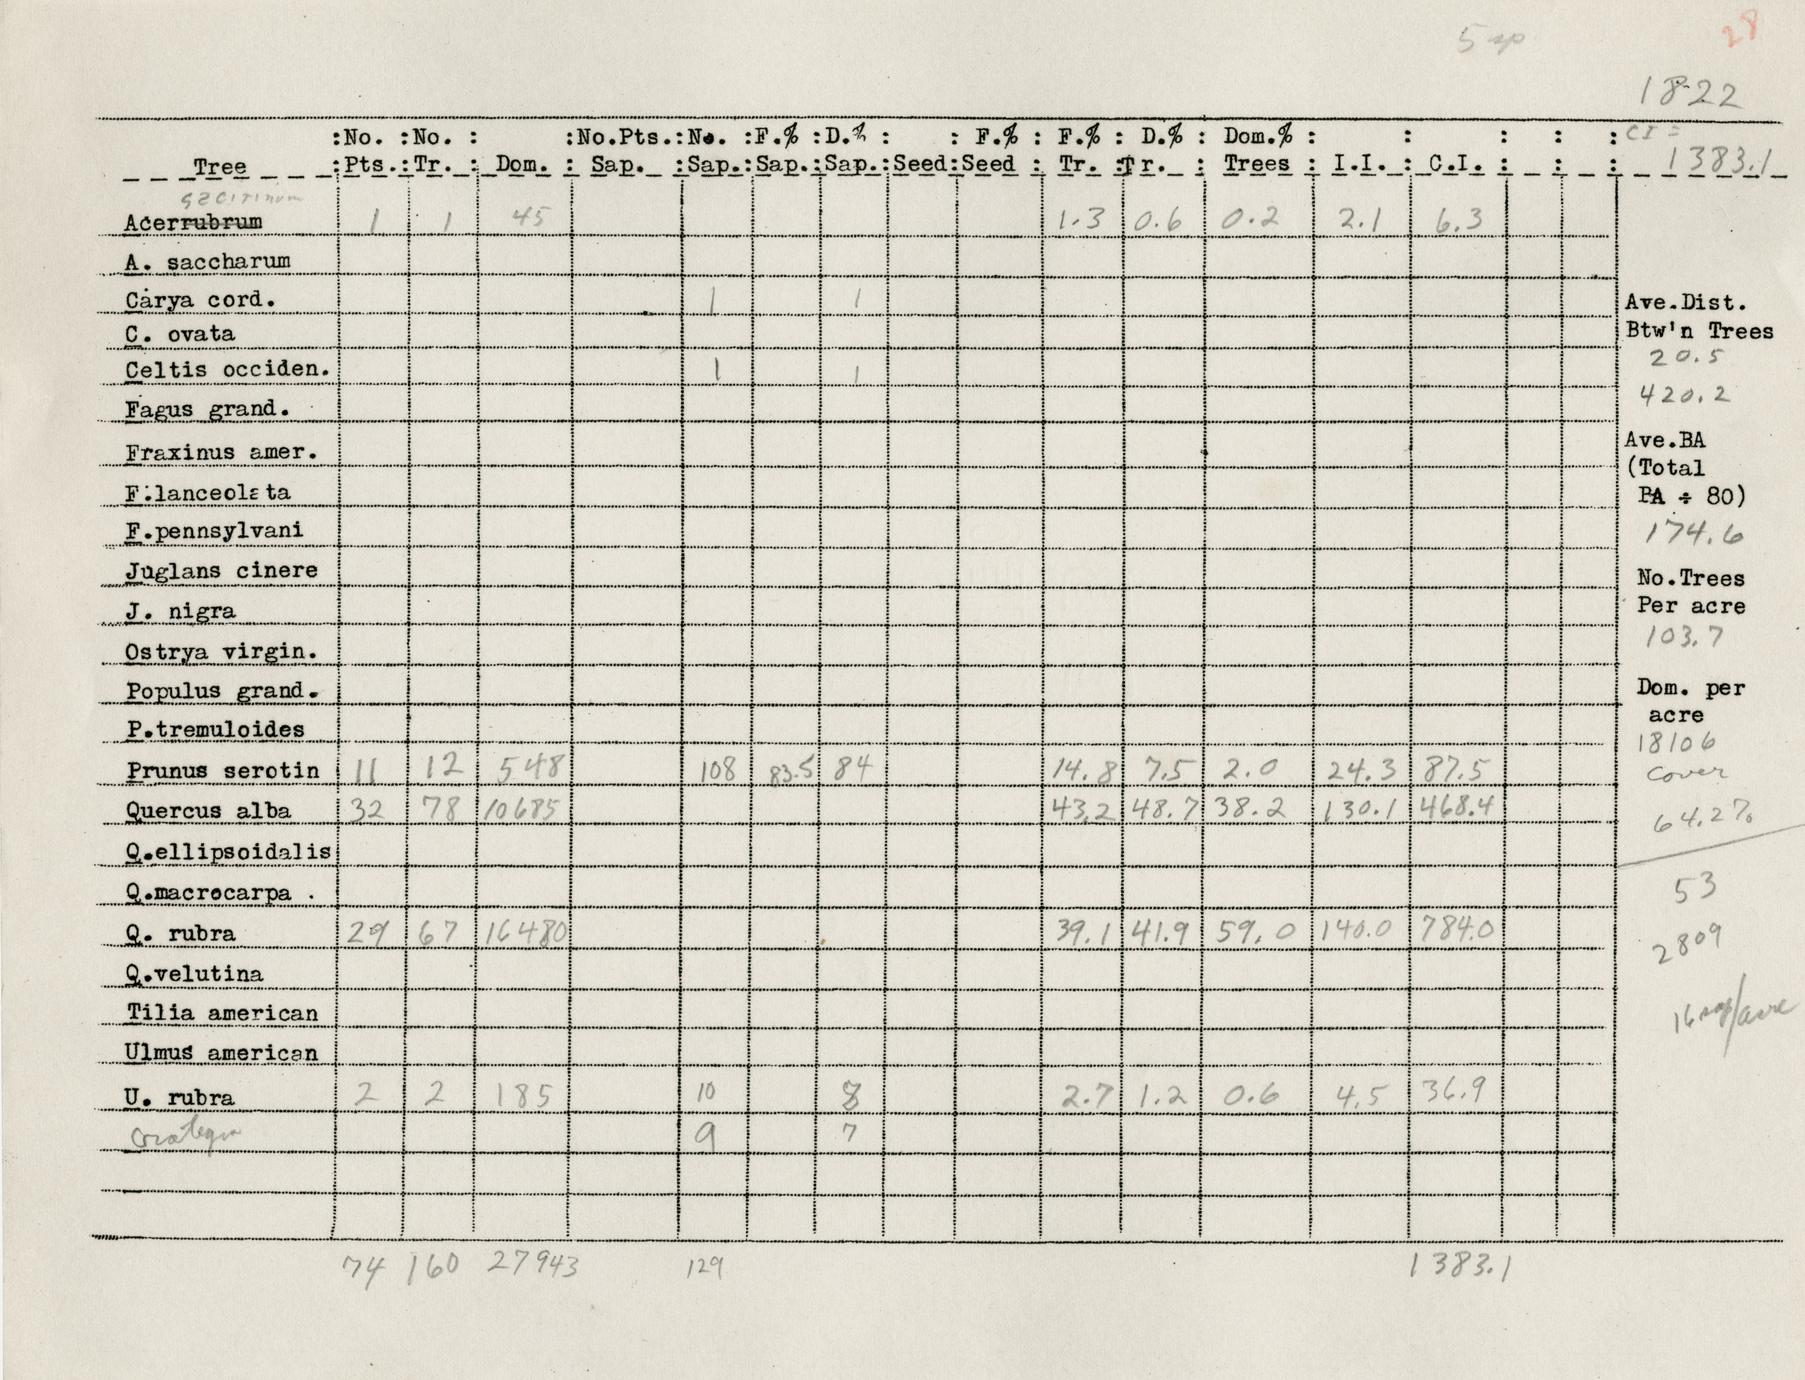 5 sp
28
1822
:No. :No. : :No.Pts.:No. :F.% :D.% : : F.% : F.% : D.% : Dom.% : : : : :
CI =
Tree :Pts.:Tr. : Dom. : Sap. :Sap.:Sap.:Sap.:Seed:Seed : Tr. :Tr. : Trees : I.I. : C.I. : : :
1383.1
saccrinum
Acer rubrum 1 1 45 1.3 0.6 0.2 2.1 6.3
A. saccharum
Carya cord. 1 1
Ave.Dist.
C. ovata
Btw'n Trees
20.5
Celtis occiden. 1 1
420.2
Fagus grand.
Ave.BA
Fraxinus amer.
(Total
F.lanceolata
BA ÷ 80)
F.pennsylvani
174.6
Juglans cinere
No.Trees
J. nigra
Per acre
103.7
Ostrya virgin.
Populus grand.
Dom. per
acre
P.tremuloides
18106
Prunus serotin 11 12 548 108 83.5 84 14.8 7.5 2.0 24.3 87.5
cover
Quercus alba 32 78 10685 43.2 48.7 38.2 130.1 468.4
64.2%
Q.ellipsoidalis
Q.macrocarpa .
53
Q. rubra 29 67 16480 39.1 41.9 59.0 140.0 784.0
2809
Q.velutina
Tilia american
16 sap/acre
Ulmus american
U. rubra 2 2 185 10 8 2.7 1.2 0.6 4.5 36.9
Crategu 9 7
74 160 27943 129 1383.1